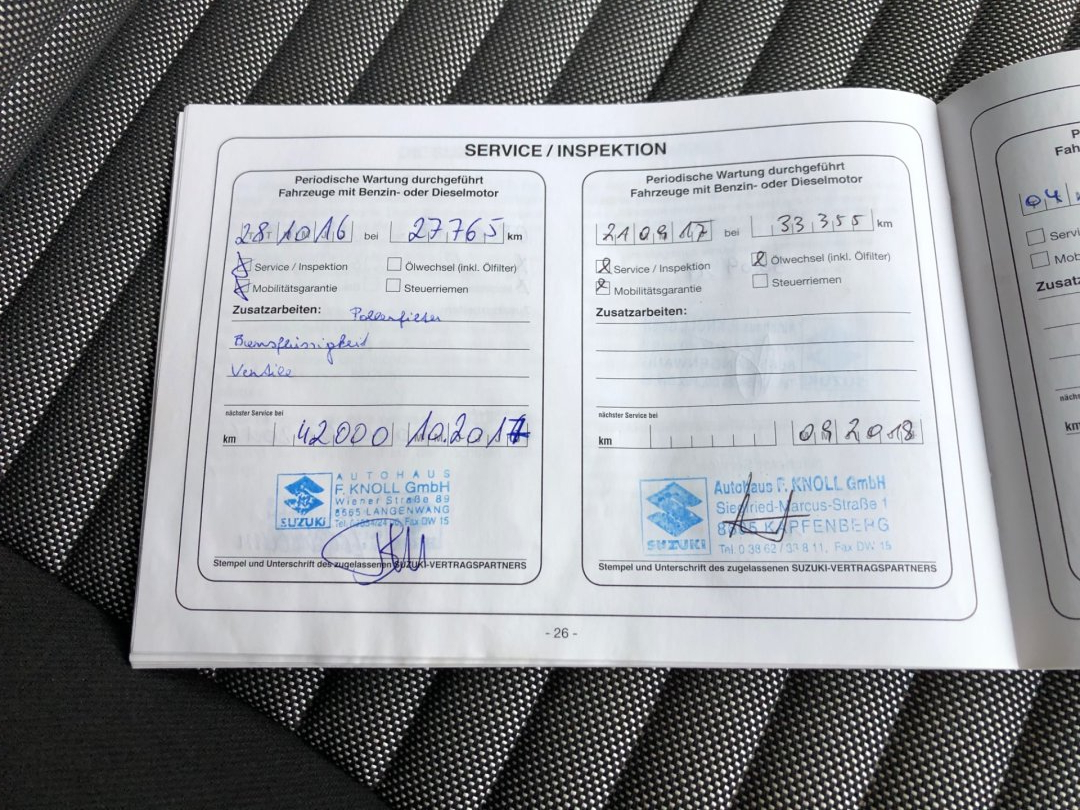 SERVICE / INSPEKTION
Periodische Wartung durchgeführt
Fahrzeuge mit Benzin- oder Dieselmotor
28 10 16 bei 27765 km
Service / Inspektion Ölwechsel (inkl. Ölfilter)
Mobilitätsgarantie Steuerriemen
Zusatzarbeiten: Pollenfilter
Bremsflüssigkeit
Ventile
nächster Service bei
km 42000 10.2017
AUTOHAUS
F. KNOLL GmbH
Wiener Straße 89
8665 LANGENWANG
SUZUKI Fax DW 15
Stempel und Unterschrift des zugelassenen SUZUKI-VERTRAGSPARTNERS
Periodische Wartung durchgeführt
Fahrzeuge mit Benzin- oder Dieselmotor
21 09 17 bei 33355 km
Service / Inspektion Ölwechsel (inkl. Ölfilter)
Mobilitätsgarantie Steuerriemen
Zusatzarbeiten:
nächster Service bei
km 09 2018
Autohaus F. KNOLL GmbH
Siegfried-Marcus-Straße 1
KAPFENBERG
SUZUKI Tel. 0 38 62 / 33 8 11, Fax DW 15
Stempel und Unterschrift des zugelassenen SUZUKI-VERTRAGSPARTNERS
- 26 -
04
km